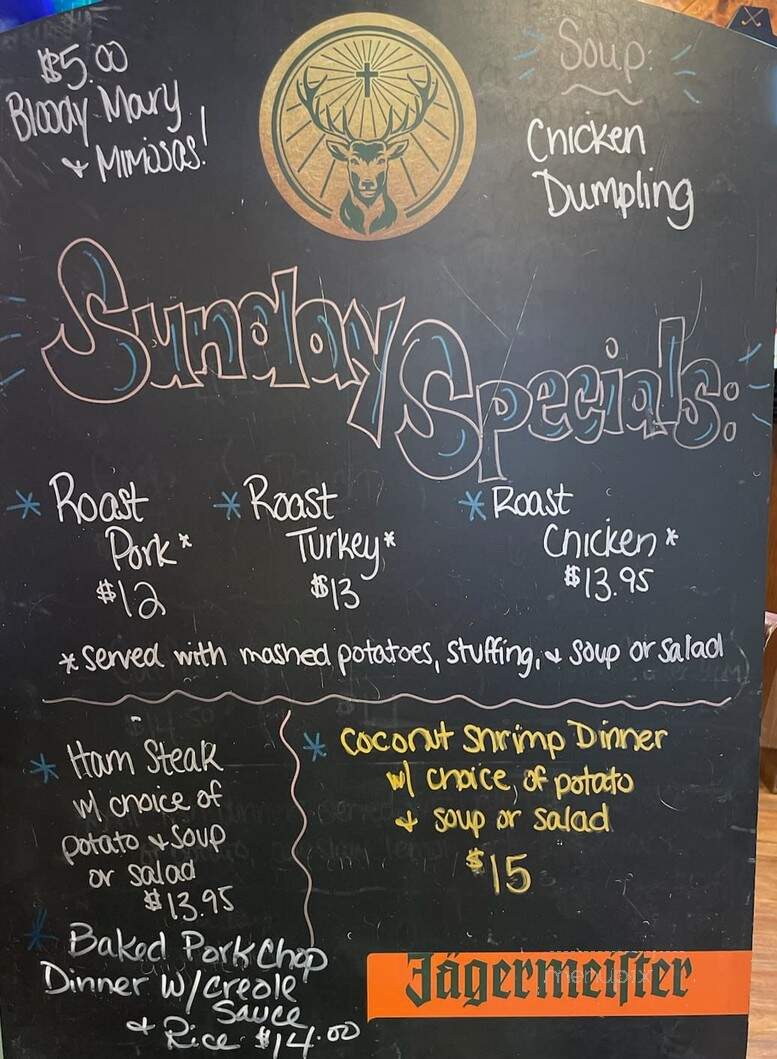 $5.00
Bloody Mary
+ Mimosas!
Soup:
Chicken
Dumpling
Sunday Specials:
* Roast
Pork*
$12
* Roast
Turkey*
$13
* Roast
Chicken*
$13.95
* served with mashed potatoes, stuffing, + soup or salad
* Ham Steak
w/ choice of
potato + soup
or salad
$13.95
* Coconut Shrimp Dinner
w/ choice of potato
+ soup or salad
$15
* Baked Pork Chop
Dinner w/creole
Sauce
+ Rice $14.00
Jägermeister
menupix